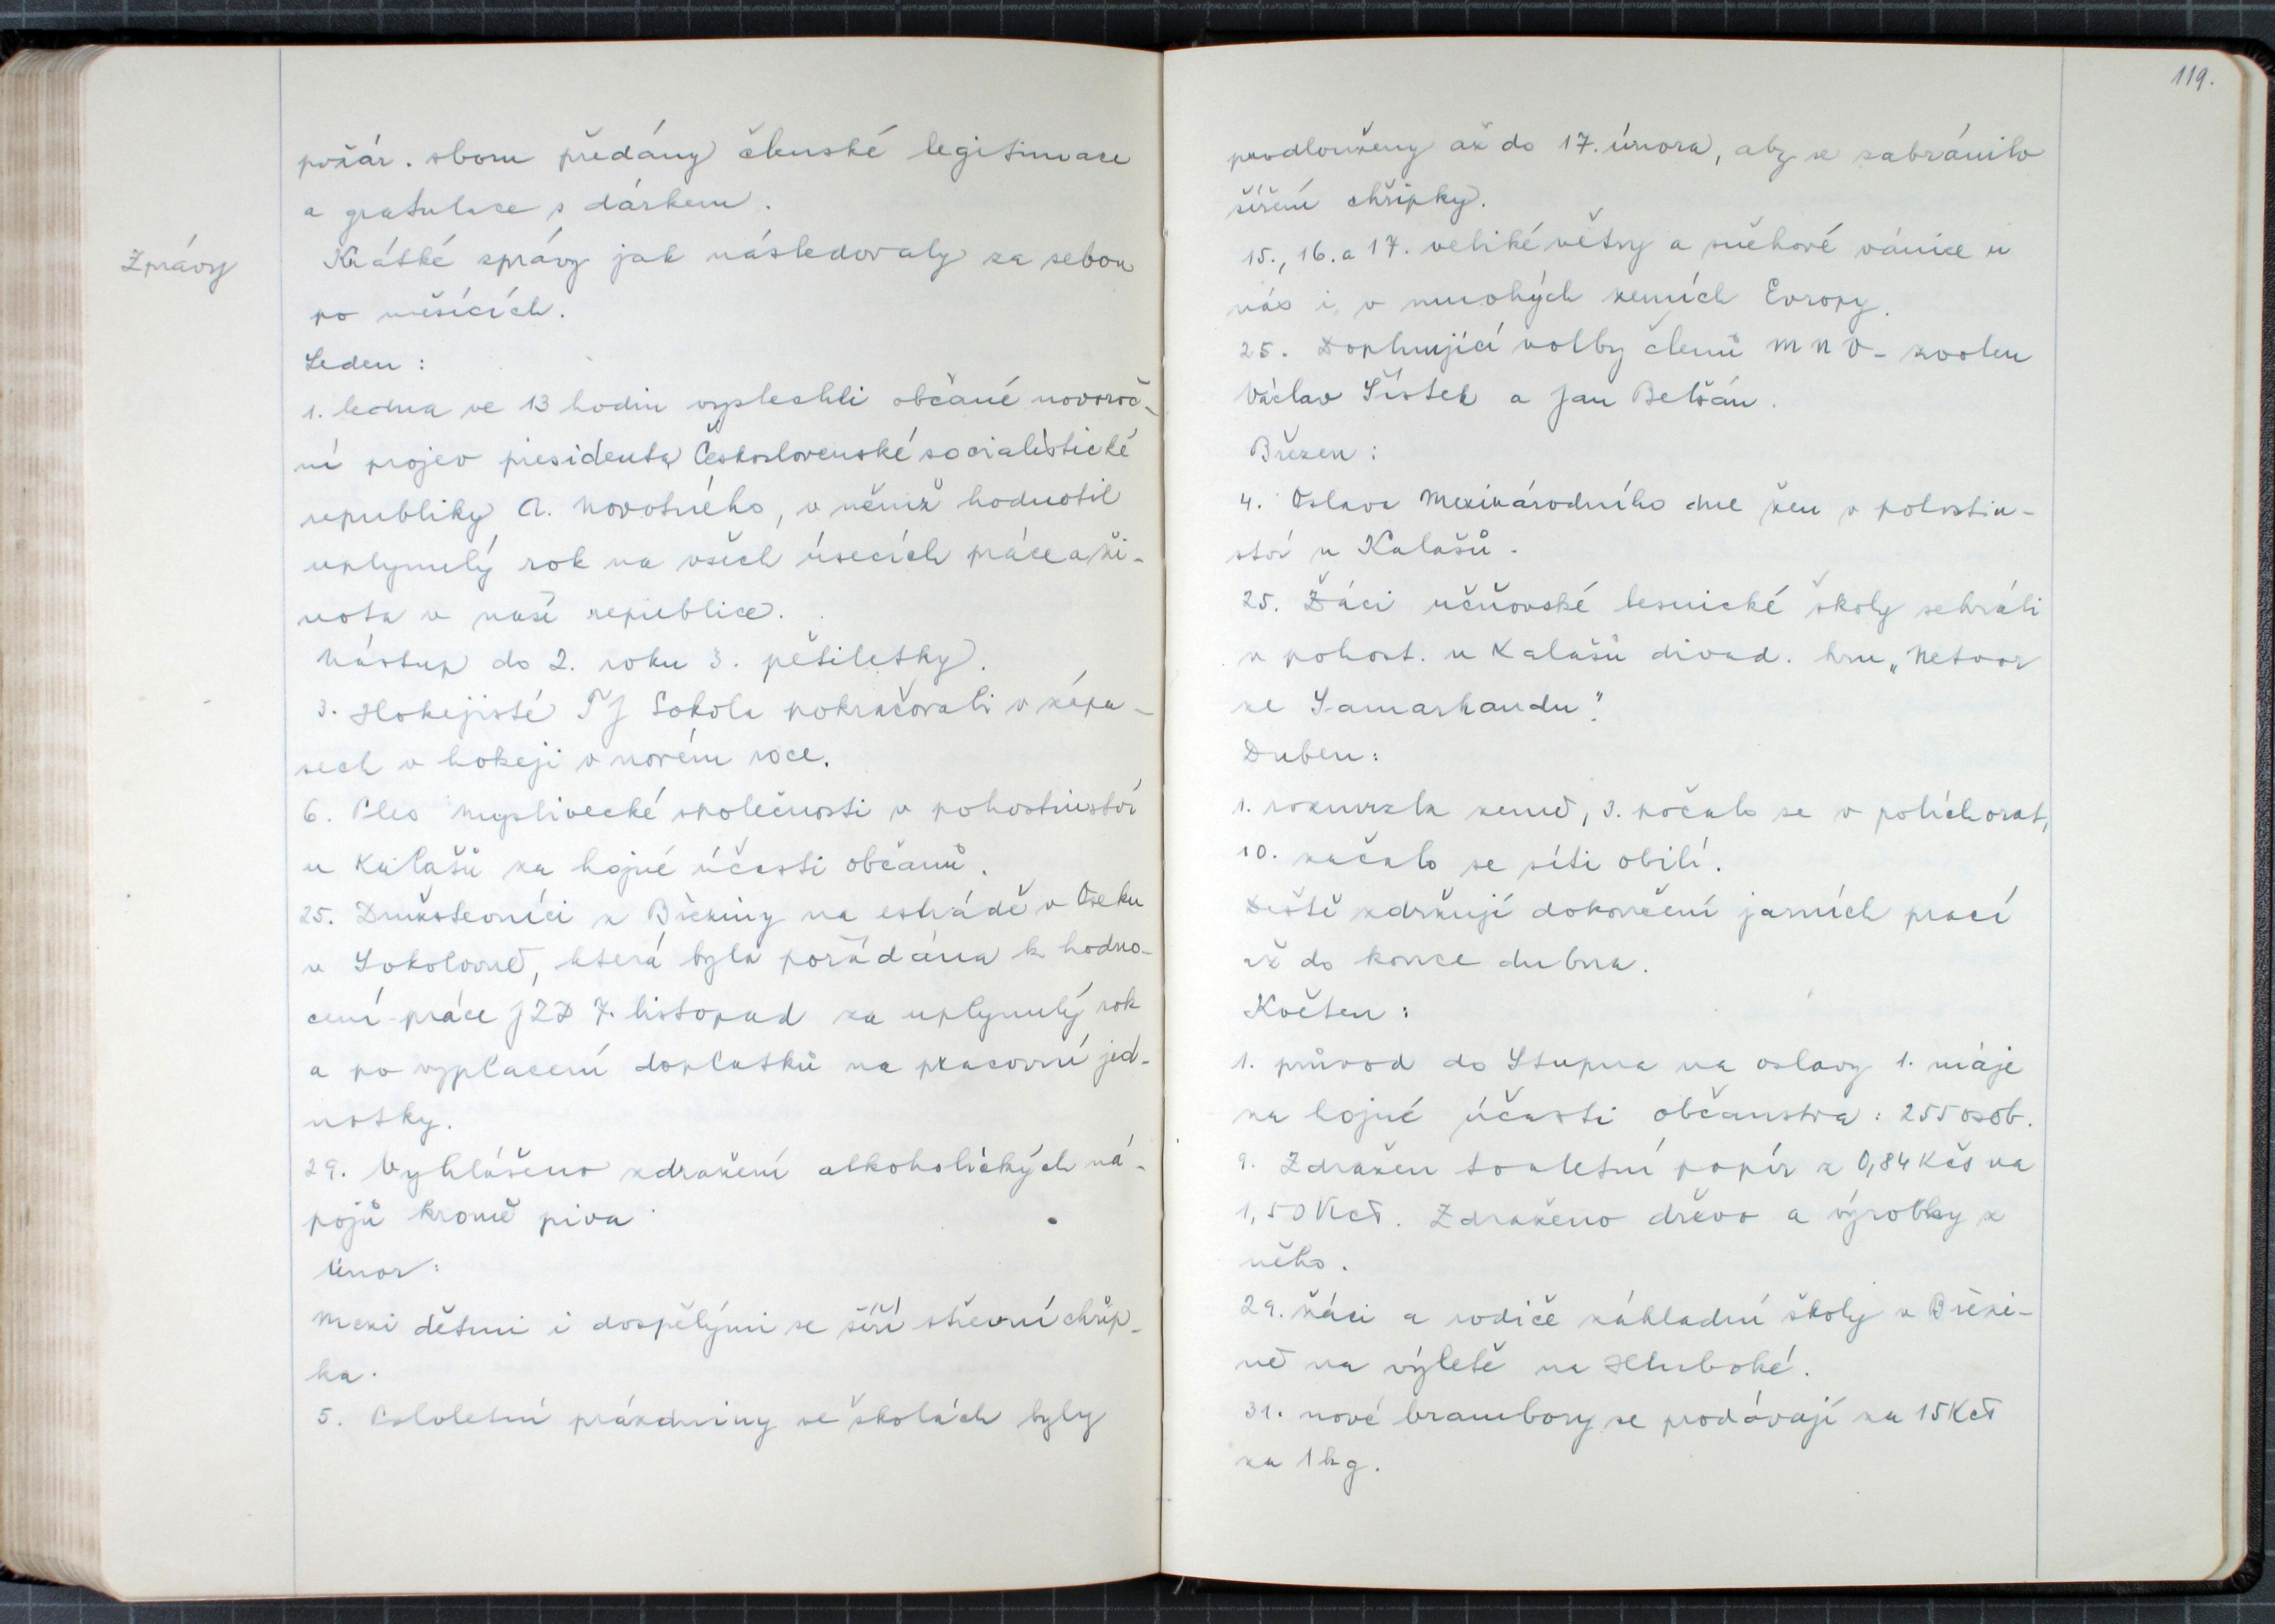 požár. sboru předány členské legitimace
a gratulace s dárkem.
Zprávy
Krátké zprávy jak následovaly za sebou
po měsících.
Leden:
1. ledna ve 13 hodin vyslechli občané novoroč-
ní projev presidenta Československé socialistické
republiky A. Novotného, v němž hodnotil
uplynulý rok na všech úsecích práce a ži-
vota v naší republice.
Nástup do 2. roku 3. pětiletky.
3. Hokejisté TJ Sokola pokračovali v zápa-
sech v hokeji v novém roce.
6. Ples myslivecké společnosti v pohostinství
u Kalašů za hojné účasti občanů.
25. Družstevníci z Březiny na estrádě v Oseku
v Sokolovně, která byla pořádána k hodno-
cení práce JZD 7. listopad za uplynulý rok
a po vyplacení doplatků na pracovní jed-
notky.
29. Vyhlášeno zdražení alkoholických ná-
pojů kromě piva.
Únor:
Mezi dětmi i dospělými se šíří střevní chřip-
ka.
5. Pololetní prázdniny ve školách byly
119.
prodlouženy až do 17. února, aby se zabránilo
šíření chřipky.
15., 16. a 17. veliké větry a sněhové vánice u
nás i v mnohých zemích Evropy.
25. Doplnující volby členů MNV - zvolen
Václav Šístek a Jan Belšán.
Březen:
4. Oslava Mezinárodního dne žen v pohostin-
ství u Kalašů.
25. Žáci učňovské lesnické školy sehráli
v pohost. u Kalašů divad. hru „Netvor
ze Samarhandu".
Duben:
1. rozmrzla země, 3. počalo se v polích orat,
10. začalo se síti obilí.
Deště zdržují dokončení jarních prací
až do konce dubna.
Květen:
1. průvod do Stupna na oslavy 1. máje
za hojné účasti občanstva: 255 osob.
9. Zdražen toaletní papír z 0,84 Kčs na
1,50 Kčs. Zdraženo dřevo a výrobky z
něho.
29. žáci a rodiče základní školy v Březi-
ně na výletě na Hluboké.
31. nové brambory se prodávají za 15 Kčs
za 1 kg.